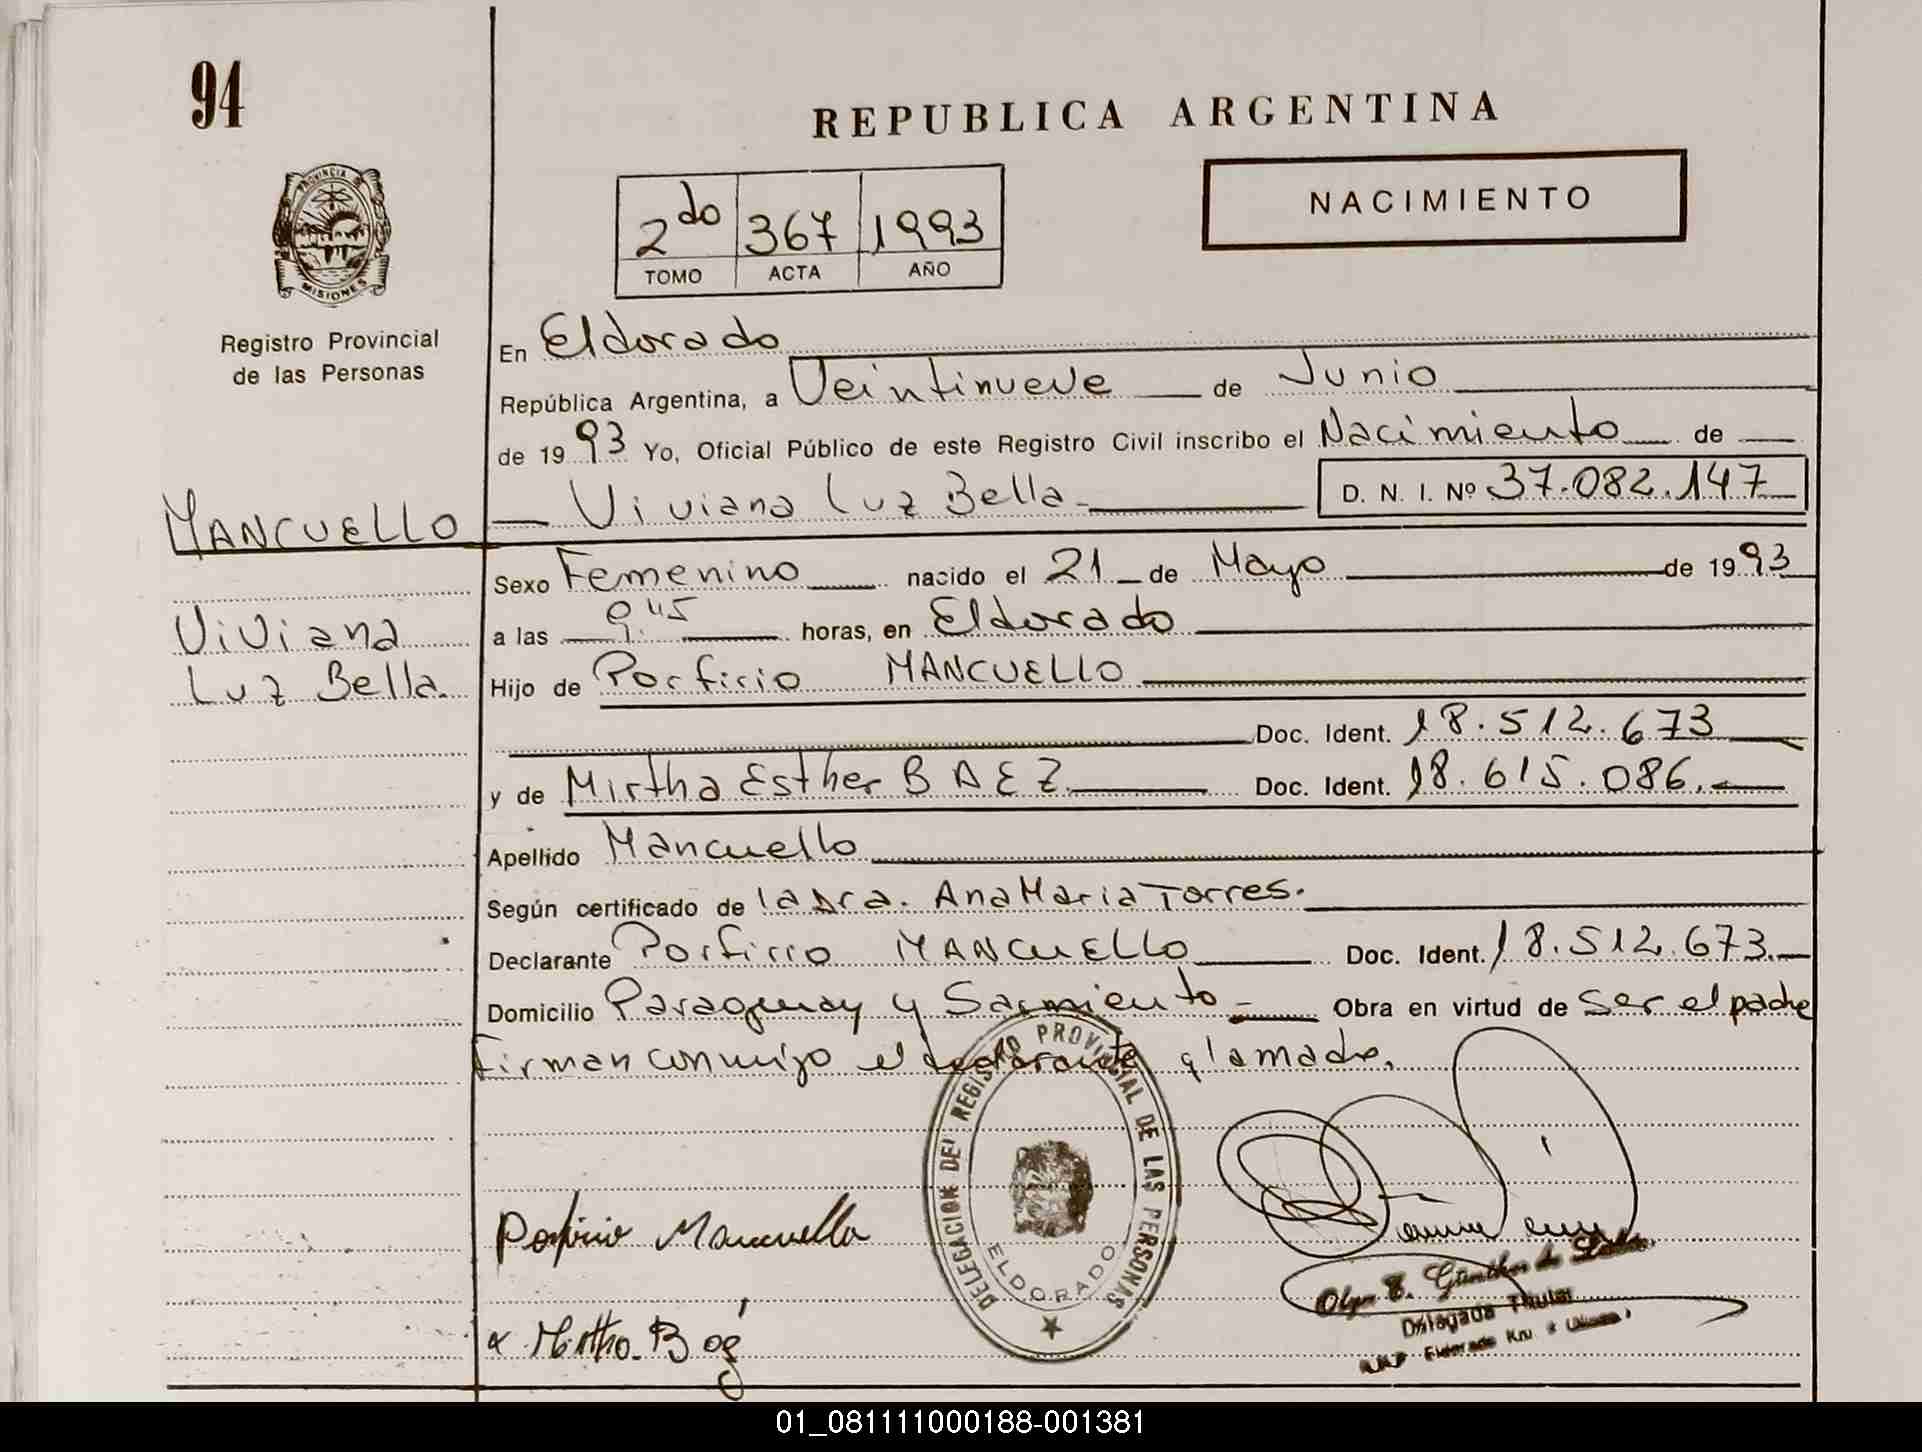 94
REPUBLICA ARGENTINA
PROVINCIA DE
MISIONES
2do 367 1993
TOMO ACTA AÑO
NACIMIENTO
Registro Provincial
de las Personas
En Eldorado
República Argentina, a Veintinueve de Junio
de 1993 Yo, Oficial Público de este Registro Civil inscribo el Nacimiento de
Viviana Luz Bella D. N. I. Nº 37.082.147
MANCUELLO
Viviana
Luz Bella.
Sexo Femenino nacido el 21 de Mayo de 1993
a las 9:45 horas, en Eldorado
Hijo de Porfirio MANCUELLO
Doc. Ident. 18.512.673
y de Mirtha Esther BAEZ. Doc. Ident. 18.615.086.
Apellido Mancuello
Según certificado de la Dra. Ana Maria Torres.
Declarante Porfirio MANCUELLO Doc. Ident. 18.512.673.
Domicilio Paraguay y Sarmiento Obra en virtud de Ser el padre
Firman conmigo el declarante y la madre.
DELEGACION DEL REGISTRO PROVINCIAL DE LAS PERSONAS
ELDORADO
Porfirio Mancuello
Olga E. Günther de
Delegada Titular
Eldorado Km.
Mirtha Baez
01_081111000188-001381